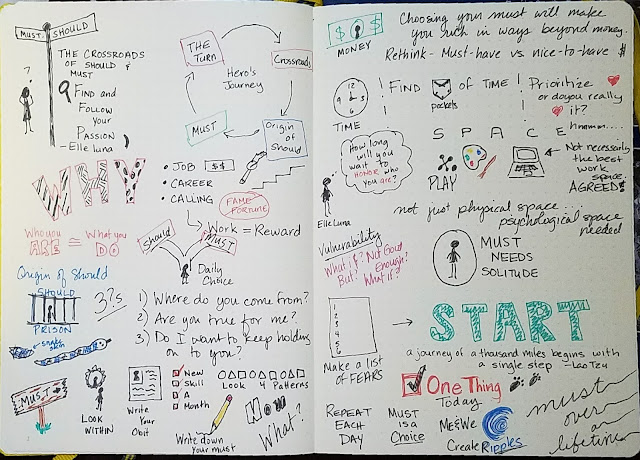 MUST
SHOULD
THE CROSSROADS
OF SHOULD &
MUST
FIND AND
FOLLOW
YOUR
PASSION
- Elle Luna
?
THE
TURN
Crossroads
Hero's
Journey
MUST
Origin of
Should
WHY
• JOB $$
• CAREER
• CALLING
FAME
FORTUNE
Work = Reward
Who you ARE = What you DO
Should
MUST
Daily
Choice
Origin of Should
SHOULD
PRISON
snake
skin
3 ?s
1) Where do you come from?
2) Are you true for me?
3) Do I want to keep holding
on to you?
MUST
LOOK
WITHIN
Write
Your
Obit
New
Skill
A
Month
Look 4 Patterns
Write down
your must
Now
What?
$ $
MONEY
Choosing your must will make
you rich in ways beyond money.
Rethink - Must-have vs. nice-to-have $
12
9 3
6
TIME
! FIND pockets of TIME!
Prioritize
or do you really
it?
hmmm....
SPACE
How long
will you
wait to
HONOR who
you are?
Elle Luna
PLAY
Not necessarily
the best
work
space.
AGREED!
not just physical space...
psychological space
needed
Vulnerability
What if? Not Good
Enough?
But! What if?
MUST
NEEDS
SOLITUDE
1
2
3
4
5
6
Make a list
of FEARS
START
a journey of a thousand miles begins with
a single step - Lao Tzu
One Thing
Today
REPEAT
EACH
DAY
MUST
is a
Choice
Me & We
Create Ripples
must
over
a
lifetime